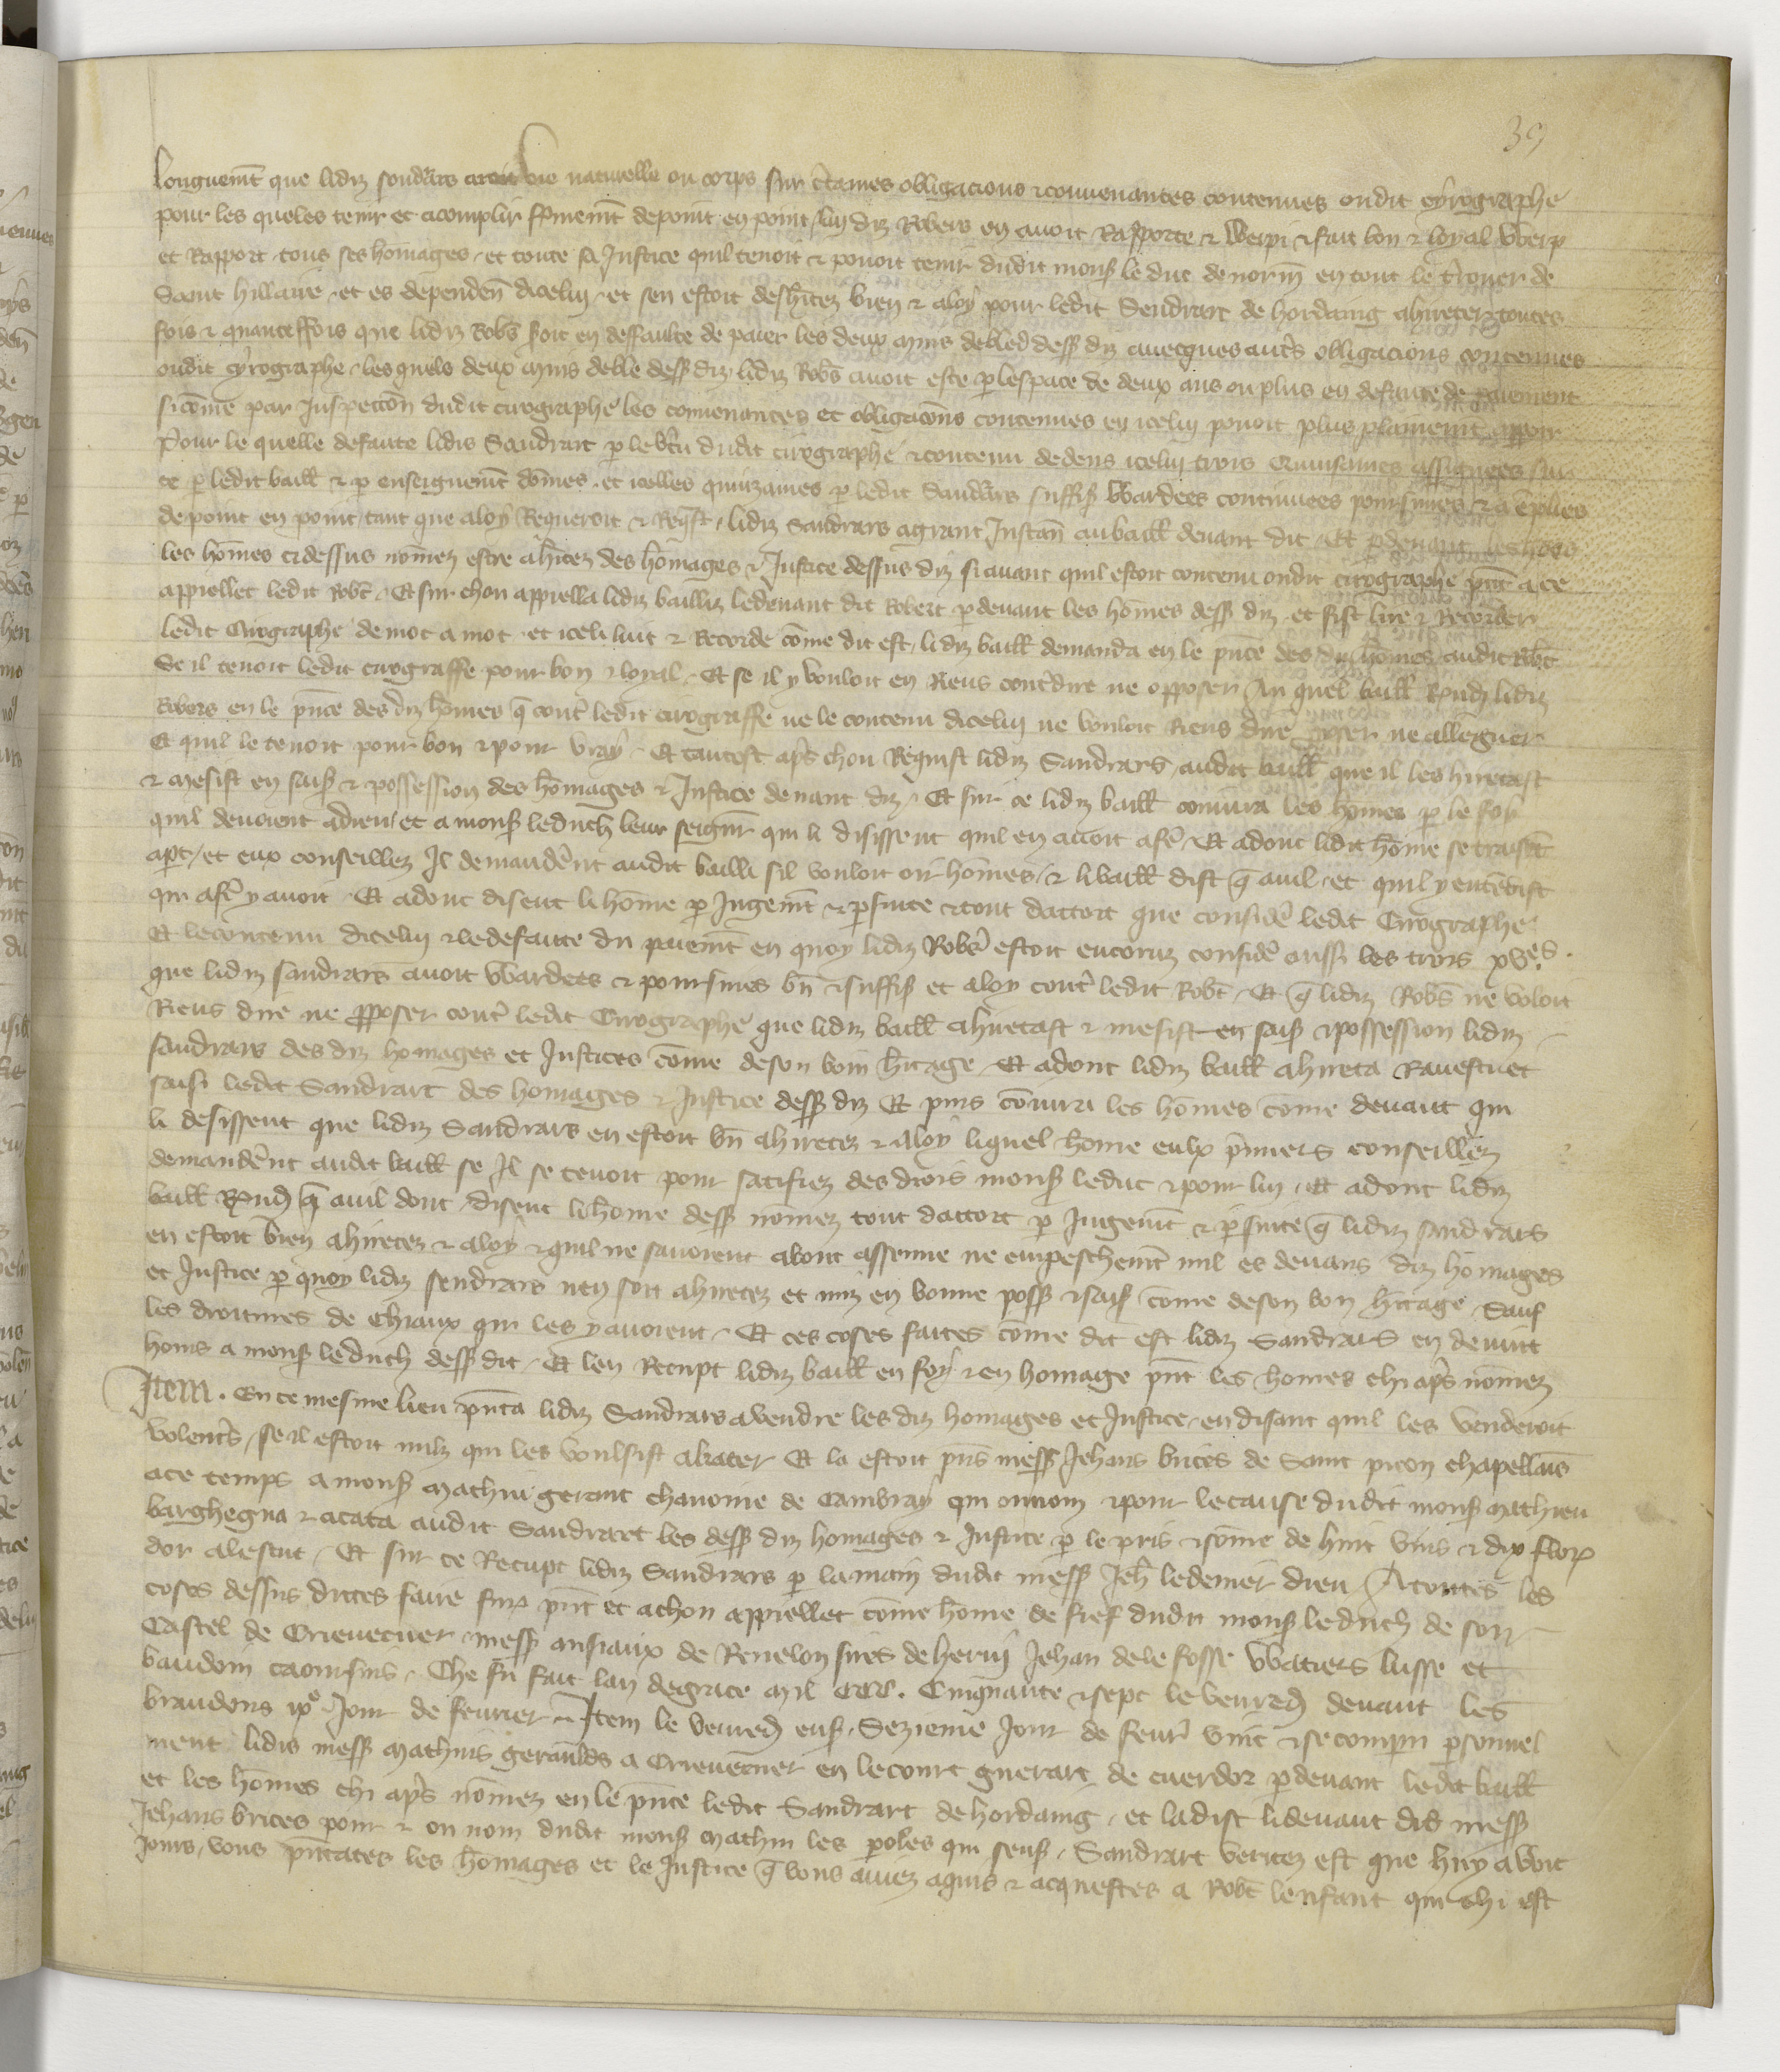 39
longuement que lidiz sendrars aroit vie naturelle ou corps sur certaines obligacions & convenances contenues oudit cyrographe
pour les queles tenir et acomplir fermement de point en point, luy diz Robers en avoit Rapporte & Werpi & fait bon & loyal Werp
et Rapport tous ses homages et toute sa Justice quil tenoit & povoit tenir dudit mons le duc de norm en tout le terroer de
Saint hillaire et es dependen dicelui et sen estoit desheritez bien & a loy pour ledit Sendrart de hordaing ahireter toutes
fois & quanteffois que lidiz Robs soit en deffaulte de paier les deux muis de bled dess diz avecques autres obligacions contenues
oudit cyrographe, les quels deux muis de ble dess diz lidiz Robs avoit este p lespace de deux ans ou plus en defaute de paiement
si come par Inspection dudit cirographe les convenances et obligacons contenues en icelui povoit plus plainement apparoir
Pour le quelle defaute lidis Sandrart p le vertu dudit cirographe & contenu dedens icelui trois Quinsaines assignees sur
ce p ledit baill & p enseignement domes et icelles quinzaines p ledit Sandrars suffis Wardees continuees poursuies & aemplies
de point en point, tant que a loy Requeroit & Reqst, lidiz Sandrars a grant Instan au baill devant dit Et p devant les hoes
les homes ci dessus nomez estre ahiretez des homages & Justice dessus diz si avant quil estoit contenu oudit cirographe pnt a ce
appiellet ledit Robt Et sur chou appiella lidiz bailliz ledevant dit Robert p devant les homes dess diz et fist lire & Recorder
ledit Cirographe de mot a mot et iceli luit & Recorde come dit est, lidiz baill demanda en le pnce des diz homes audit Robt
Se il tenoit ledit cirograffe pour bon & loyal Et se il y vouloit en Riens contredire ne opposer Au quel baill Rondi lidiz
Robers en le pnce des diz homes q contr ledit cirograffe ne le contenu dicelui ne vouloit Riens dire poser ne alleguer
Et quil le tenoit pour bon & pour vray Et tantost aps chou Requist lidiz Sandrars audit baill que il les hiretast
& mesist en saiss & possession des homages & Justice devant diz Et sur ce lidiz baill coniura les homes p le foy
quil devoient a dieu et a mons le duch leur seignr qui li disissent quil en avoit a fe Et adont lidit home se traisent
apt, et eux conseillez Il demanderent audit bailli sil vouloit oir homes & li baill dist q auil et quil y entendist
qui a fe y avoit Et adont disent li home p Jugemt & p suite & tout dacort que consider ledit Cirographe
Et le contenu dicelui & le defaute du paiemt en quoy lidiz Robs estoit encoruz consider aussi les trois xves
que lidiz sandrars avoit Wardees & poursuies bn & suffis et a loy contr ledit Robt Et q lidiz Robs ne voloit
Riens dire ne pposer contr ledit Cirographe que lidiz baill ahiretast & mesist en saiss & possession lidiz
sandrars des diz homages et Justices come de son boin hitage Et adont lidiz baill ahireta Ravesti et
saisi ledit Sandrart des homages & Justice dess diz Et puis coniura les homes come devant qui
li desissent que lidiz Sandrars en estoit bn ahiretez & a loy liquel home eulx pmiers conseillez
demanderent audit baill se Il se tenoit pour satifiez des drois mons le duc & pour lui Et adont lidiz
baill Rondi q auil dont disent li home dess nomez tout dacort p Jugemt & p suite q lidiz sandrars
en estoit bien ahiretez & a loy & quil ne savoient about assenne ne empeschemt nul es devans diz homages
et Justice p quoy lidiz sendrars nen soit ahiretez et miz en bonne poss & saiss come de son bon hitage Sauf
les droitures de chiaux qui les y avoient Et ces coses faites come dit est lidiz Sandrars en devint
homs a mons le duch dess dit Et len Recupt lidiz baill en foy & en homage pnt les homes chi aps nomez
Item. En ce mesme lieu pnta lidiz Sandrars a vendre les diz homages et Justice, en disant quil les venderoit
volenters, se il estoit nulz qui les voulsist akater Et la estoit pns mess Jehans brices de Saint picon chapellains
a ce temps a mons mathiu gerant chanoine de Cambray qui ou nom & pour le cause dudit mons mathieu
barghegna & acata audit Sandrart les dess diz homages & Justice p le pris & some de huit vins & dix florx
dor a lescut Et sur ce Recupt lidiz Sandrars p la main dudit mess Jeh le denier dieu A toutes les
coses dessus dittes faire furx pnt et a chou appiellet come home de fief dudit mons le duch de son
Castel de Crievecuer mess ansiaux de Revelon sires de herin Jehan de le fosse Watiers lusse et
baudoin caoursins Che fu fait lan de grace mil CCC. Cinquante & sept le venredi devant les
brandons ixe Jour de fevrier Item le venredi ens Sezieme Jour de fevr vint & se compu personnel
ment lidis mess mathius geraulds a Crievecuer en le court guerart de cuerdor p devant ledit baill
et les homes chi aps nomez en le pnce ledit Sandrart de hordaing, et la dist li devant dis mess
Jehans brices pour & ou nom dudit mons mathiu les paroles qui sens, Sandrart veritez est que huy a Wit
Jours, vous pntates les homages et le Justice q vous aviez aquis & acquestes a Robt lenfant qui chi est